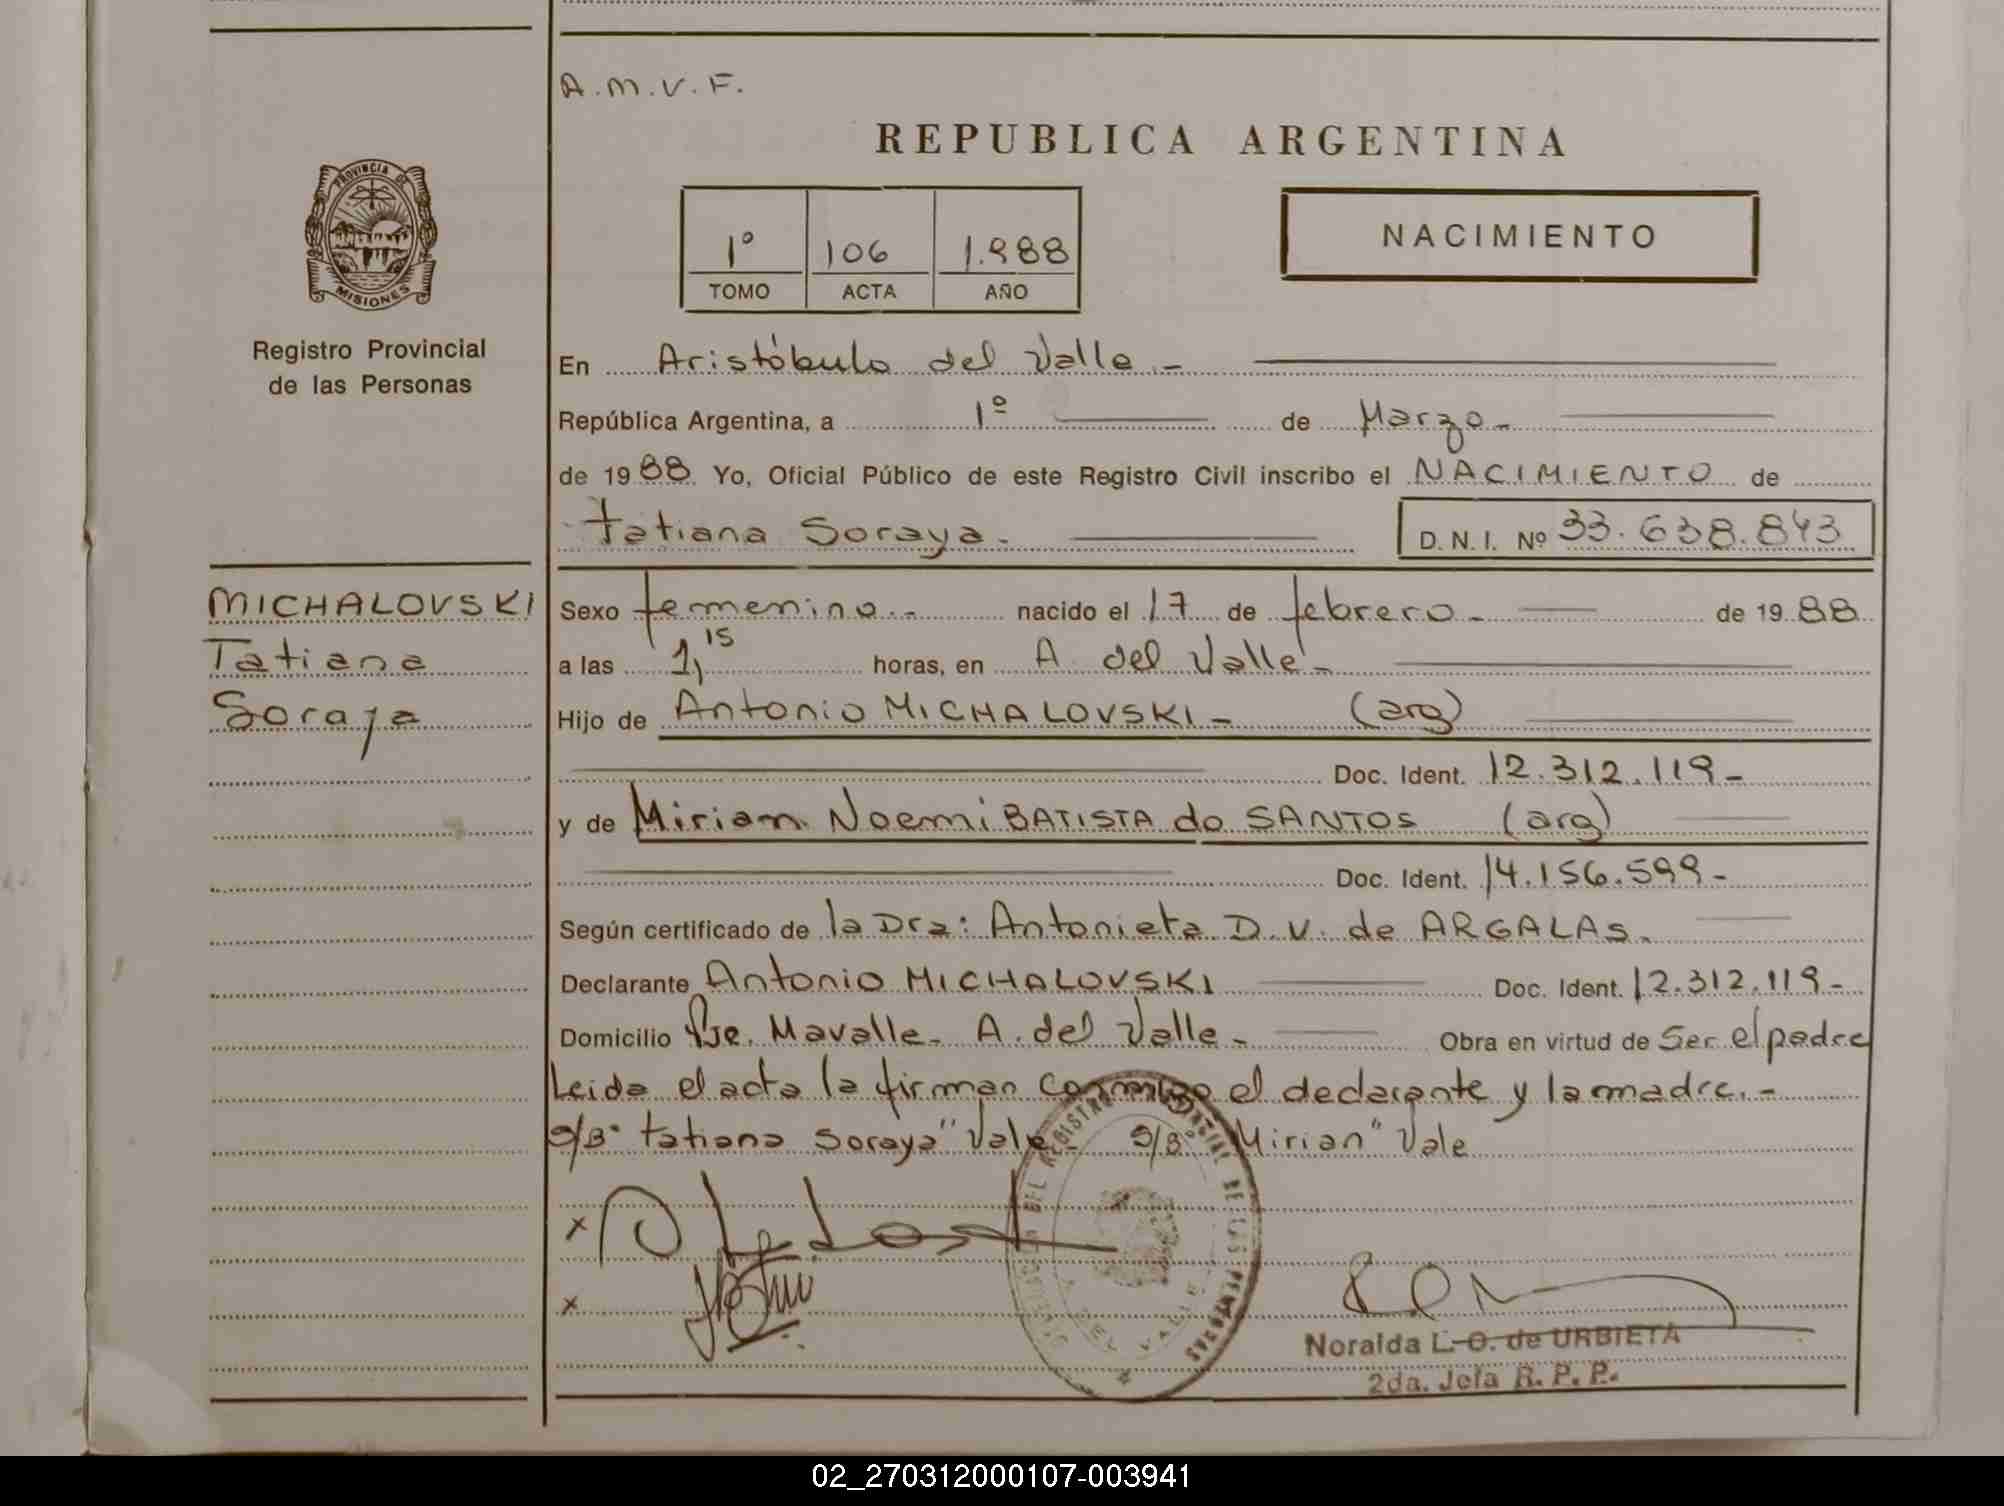 A.M.V.F.
REPUBLICA ARGENTINA
PROVINCIA DE
MISIONES
1º 106 1.988
TOMO ACTA AÑO
NACIMIENTO
Registro Provincial
de las Personas
En Aristóbulo del Valle.-
República Argentina, a 1º de Marzo-
de 1988 Yo, Oficial Público de este Registro Civil inscribo el NACIMIENTO de
Tatiana Soraya-
D.N.I. Nº 33.638.843
MICHALOVSKI
Tatiana
Soraya
Sexo femenino.- nacido el 17 de febrero- de 1988
a las 1,15 horas, en A del Valle-
Hijo de Antonio MICHALOVSKI- (arg)
Doc. Ident. 12.312.119-
y de Mirian Noemi BATISTA do SANTOS (arg)
Doc. Ident. 14.156.599-
Según certificado de la Dra: Antonieta D.V. de ARGALAS.
Declarante Antonio MICHALOVSKI Doc. Ident. 12.312.119-
Domicilio Pje. Mavalle- A. del Valle- Obra en virtud de Ser el padre
Leida el acta la firman conmigo el declarante y la madre.-
S/Bº tatiana soraya" Vale S/Bº Mirian" Vale
x
x
DEL REGISTRO PROVINCIAL DE LAS PERSONAS
A. DEL VALLE
Noralda L. O. de URBIETA
2da. Jefa R. P. P.
02_270312000107-003941